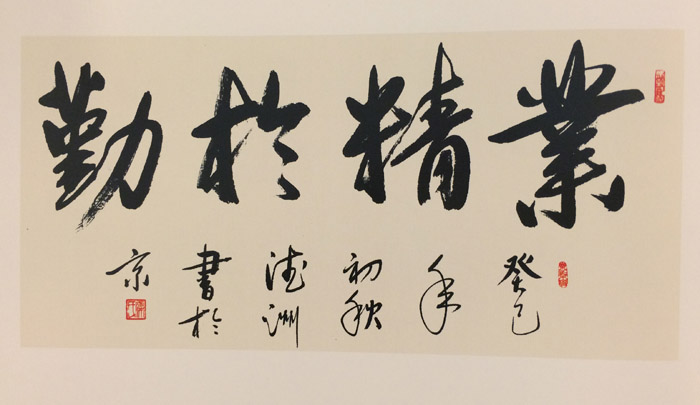 業精於勤
癸巳年初秋
德洲書於京